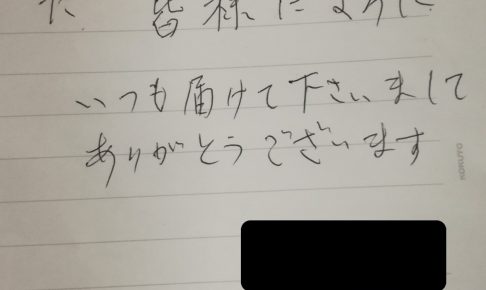 皆様
いつも届けて下さいまして
ありがとうございます
KOKUYO